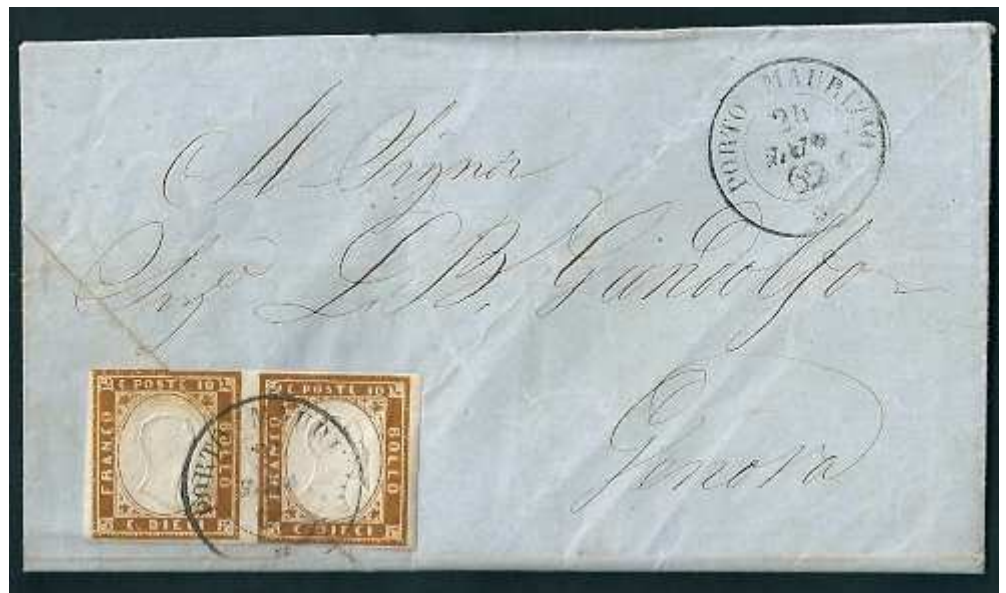 PORTO MAURIZIO
24
62
Al Signor
Sigr G. B. Gandolfo
Genova
C POSTE 10
FRANCO
BOLLO
C. DIECI
C POSTE 10
FRANCO
BOLLO
C. DIECI
PORTO MAURI